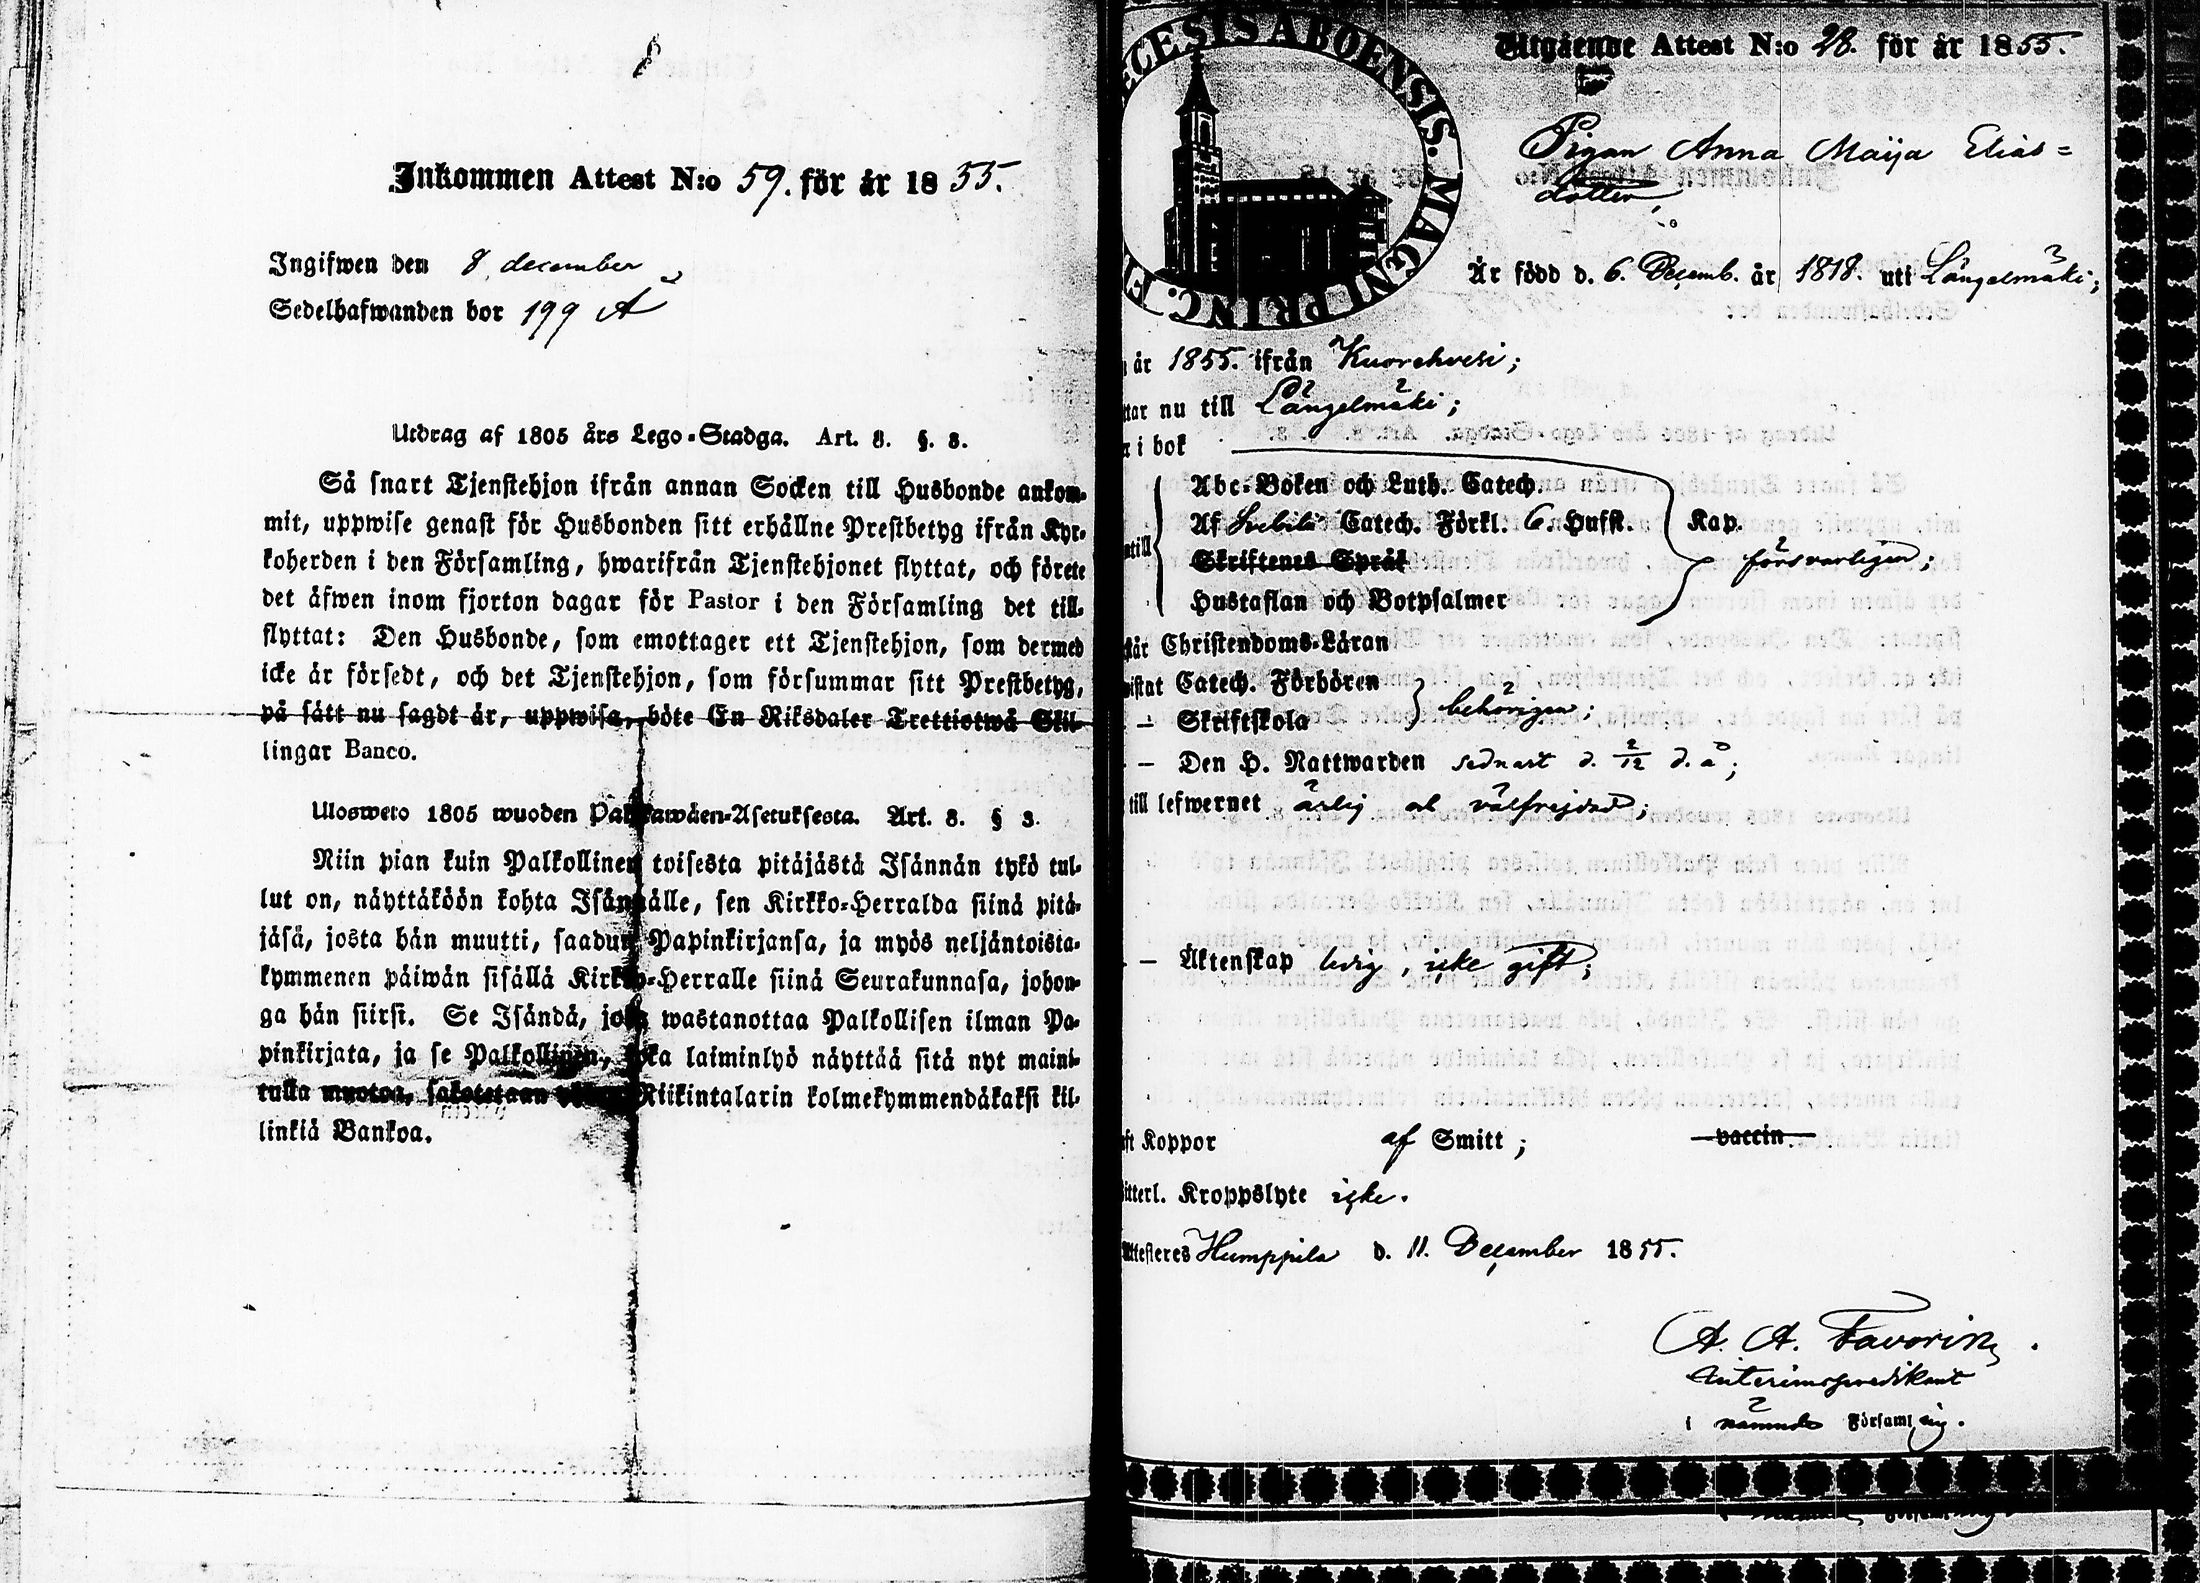 8
Inkommen Attest N:o 59. för år 1855.
Ingifwen den 8 december
Sedelhafwanden bor 199 A
Utdrag af 1805 års Lego-Stadga. Art. 8. §. 3.
Så snart Tjenstehjon ifrån annan Socken till Husbonde ankom-
mit, uppwise genast för Husbonden sitt erhållne Prestbetyg ifrån Kyr-
koherden i den Församling, hwarifrån Tjenstehjonet flyttat, och förete
det äfwen inom fjorton dagar för Pastor i den Församling det till-
flyttat: Den Husbonde, som emottager ett Tjenstehjon, som dermed
icke är försedt, och det Tjenstehjon, som försummar sitt Prestbetyg,
på sätt nu sagdt är, uppwisa, böte En Riksdaler Trettiotwå Skil-
lingar Banco.
Ulosweto 1805 wuoden Palkkawäen-Asetuksesta. Art. 8. § 3.
Niin pian kuin Palkollinen toisesta pitäjästä Isännän tykö tul-
lut on, näyttäköön kohta Isännälle, sen Kirkko-Herralda siinä pitä-
jäsä, josta hän muutti, saadun Papinkirjansa, ja myös neljäntoista-
kymmenen päiwän sisällä Kirkko-Herralle siinä Seurakunnasa, johon-
ga hän siirsi. Se Isändä, joka wastanottaa Palkollisen ilman Pa-
pinkirjata, ja se Palkollinen, joka laiminlyö näyttää sitä nyt maini-
tulla muotoa, sakotetaan yhden Riikintalarin kolmekymmendäkaksi kil-
linkiä Bankoa.
ECESIS ABOENSIS. MAGNI PRINC. F
Utgående Attest N:o 28. för år 1855.
Pigan Anna Maija Elias=
dotter,
Är född d. 6. Decemb. år 1818. uti Längelmäki;
år 1855. ifrån Kuorehvesi;
ttar nu till Längelmäki;
r i bok
Abc-Boken och Luth. Catech.
Af Svebilii Catech. Förkl. 6. Hufst. Kap.
ntill Skriftenes Språk försvarligen;
Hustaflan och Botpsalmer
står Christendoms-Läran
wistat Catech. Förhören
— Skriftskola behörigen;
— — Den H. Nattwarden sednast d. 2/12 d. å;
till lefwernet ärlig och välfrejdad;
— — Äktenskap ledig, icke gift;
aft Koppor af Smitt; vaccin
Wittterl. Kroppslyte icke.
Attesteres Humppila d. 11. December 1855.
A. A. Favorin.
Interimspredikant
i nämnde Församling.